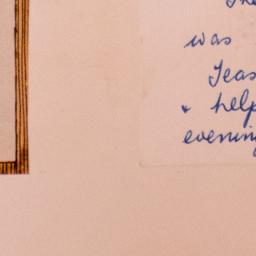 The
was
Teas
+ help
evening